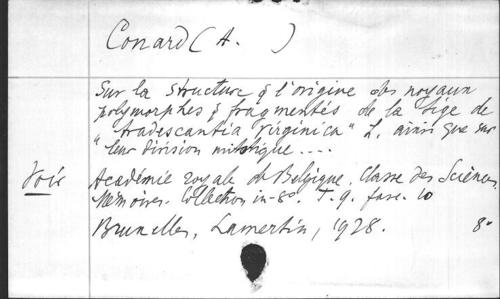 Conard (A. )
Sur la structure & l'origine des noyaux
polymorphes & fragmentés de la tige de
"tradescantia virginica" L. ainsi que sur
leur division mitotique ....
Voir Académie royale de Belgique. Classe des Sciences
Mémoires. Collection in-8º. T. 9. fasc. 10
Bruxelles, Lamertin, 1928. 8º